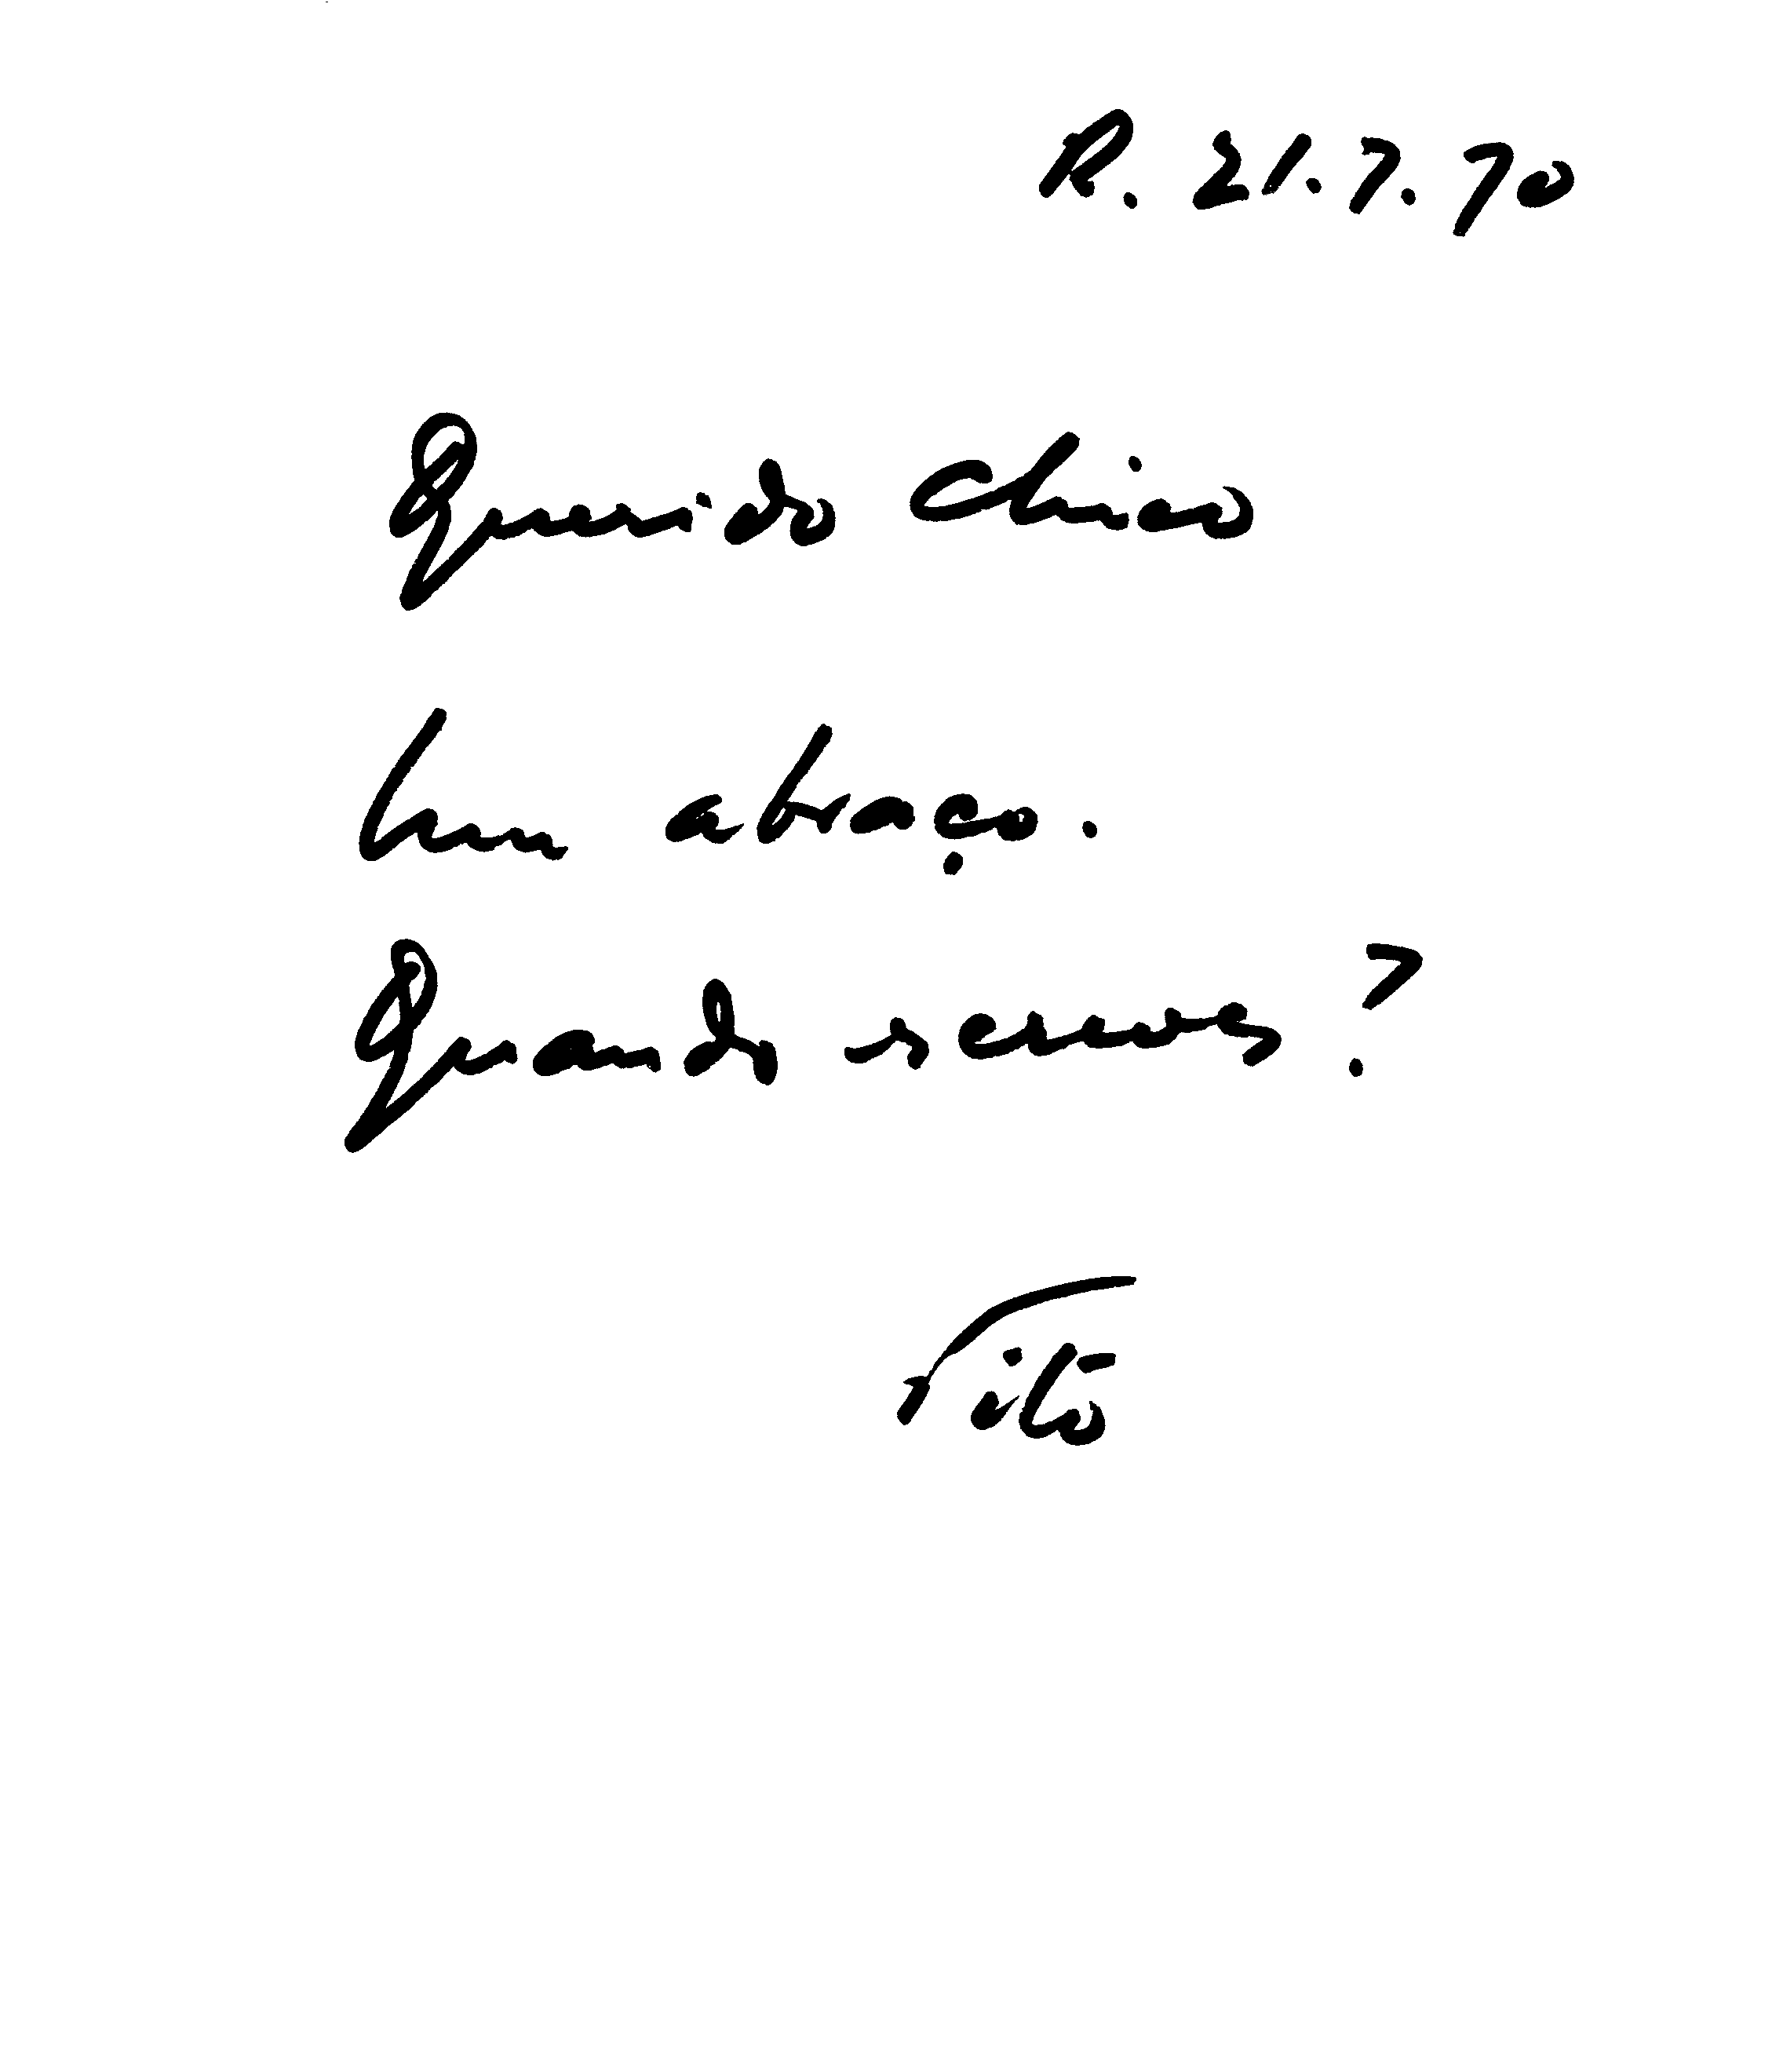 R. 21.7.70
Querido Chico
Um abraço.
Quando ?
Tito